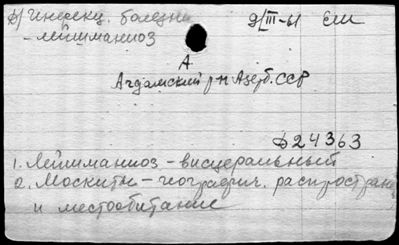 д) Инфекц. болезни 9/III-61 ЕШ
- лейшманиоз
А
Агдамский р-н Азерб. ССР
Ф24363
1. Лейшманиоз - висцеральный
2. Москиты - географич. распростране
и местообитание